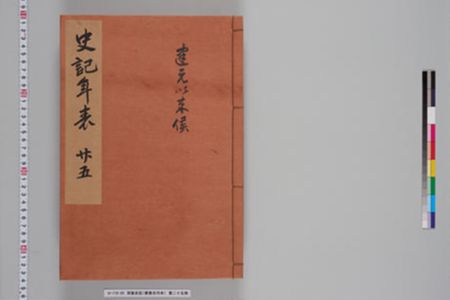 建元以来侯
史記年表 廿五